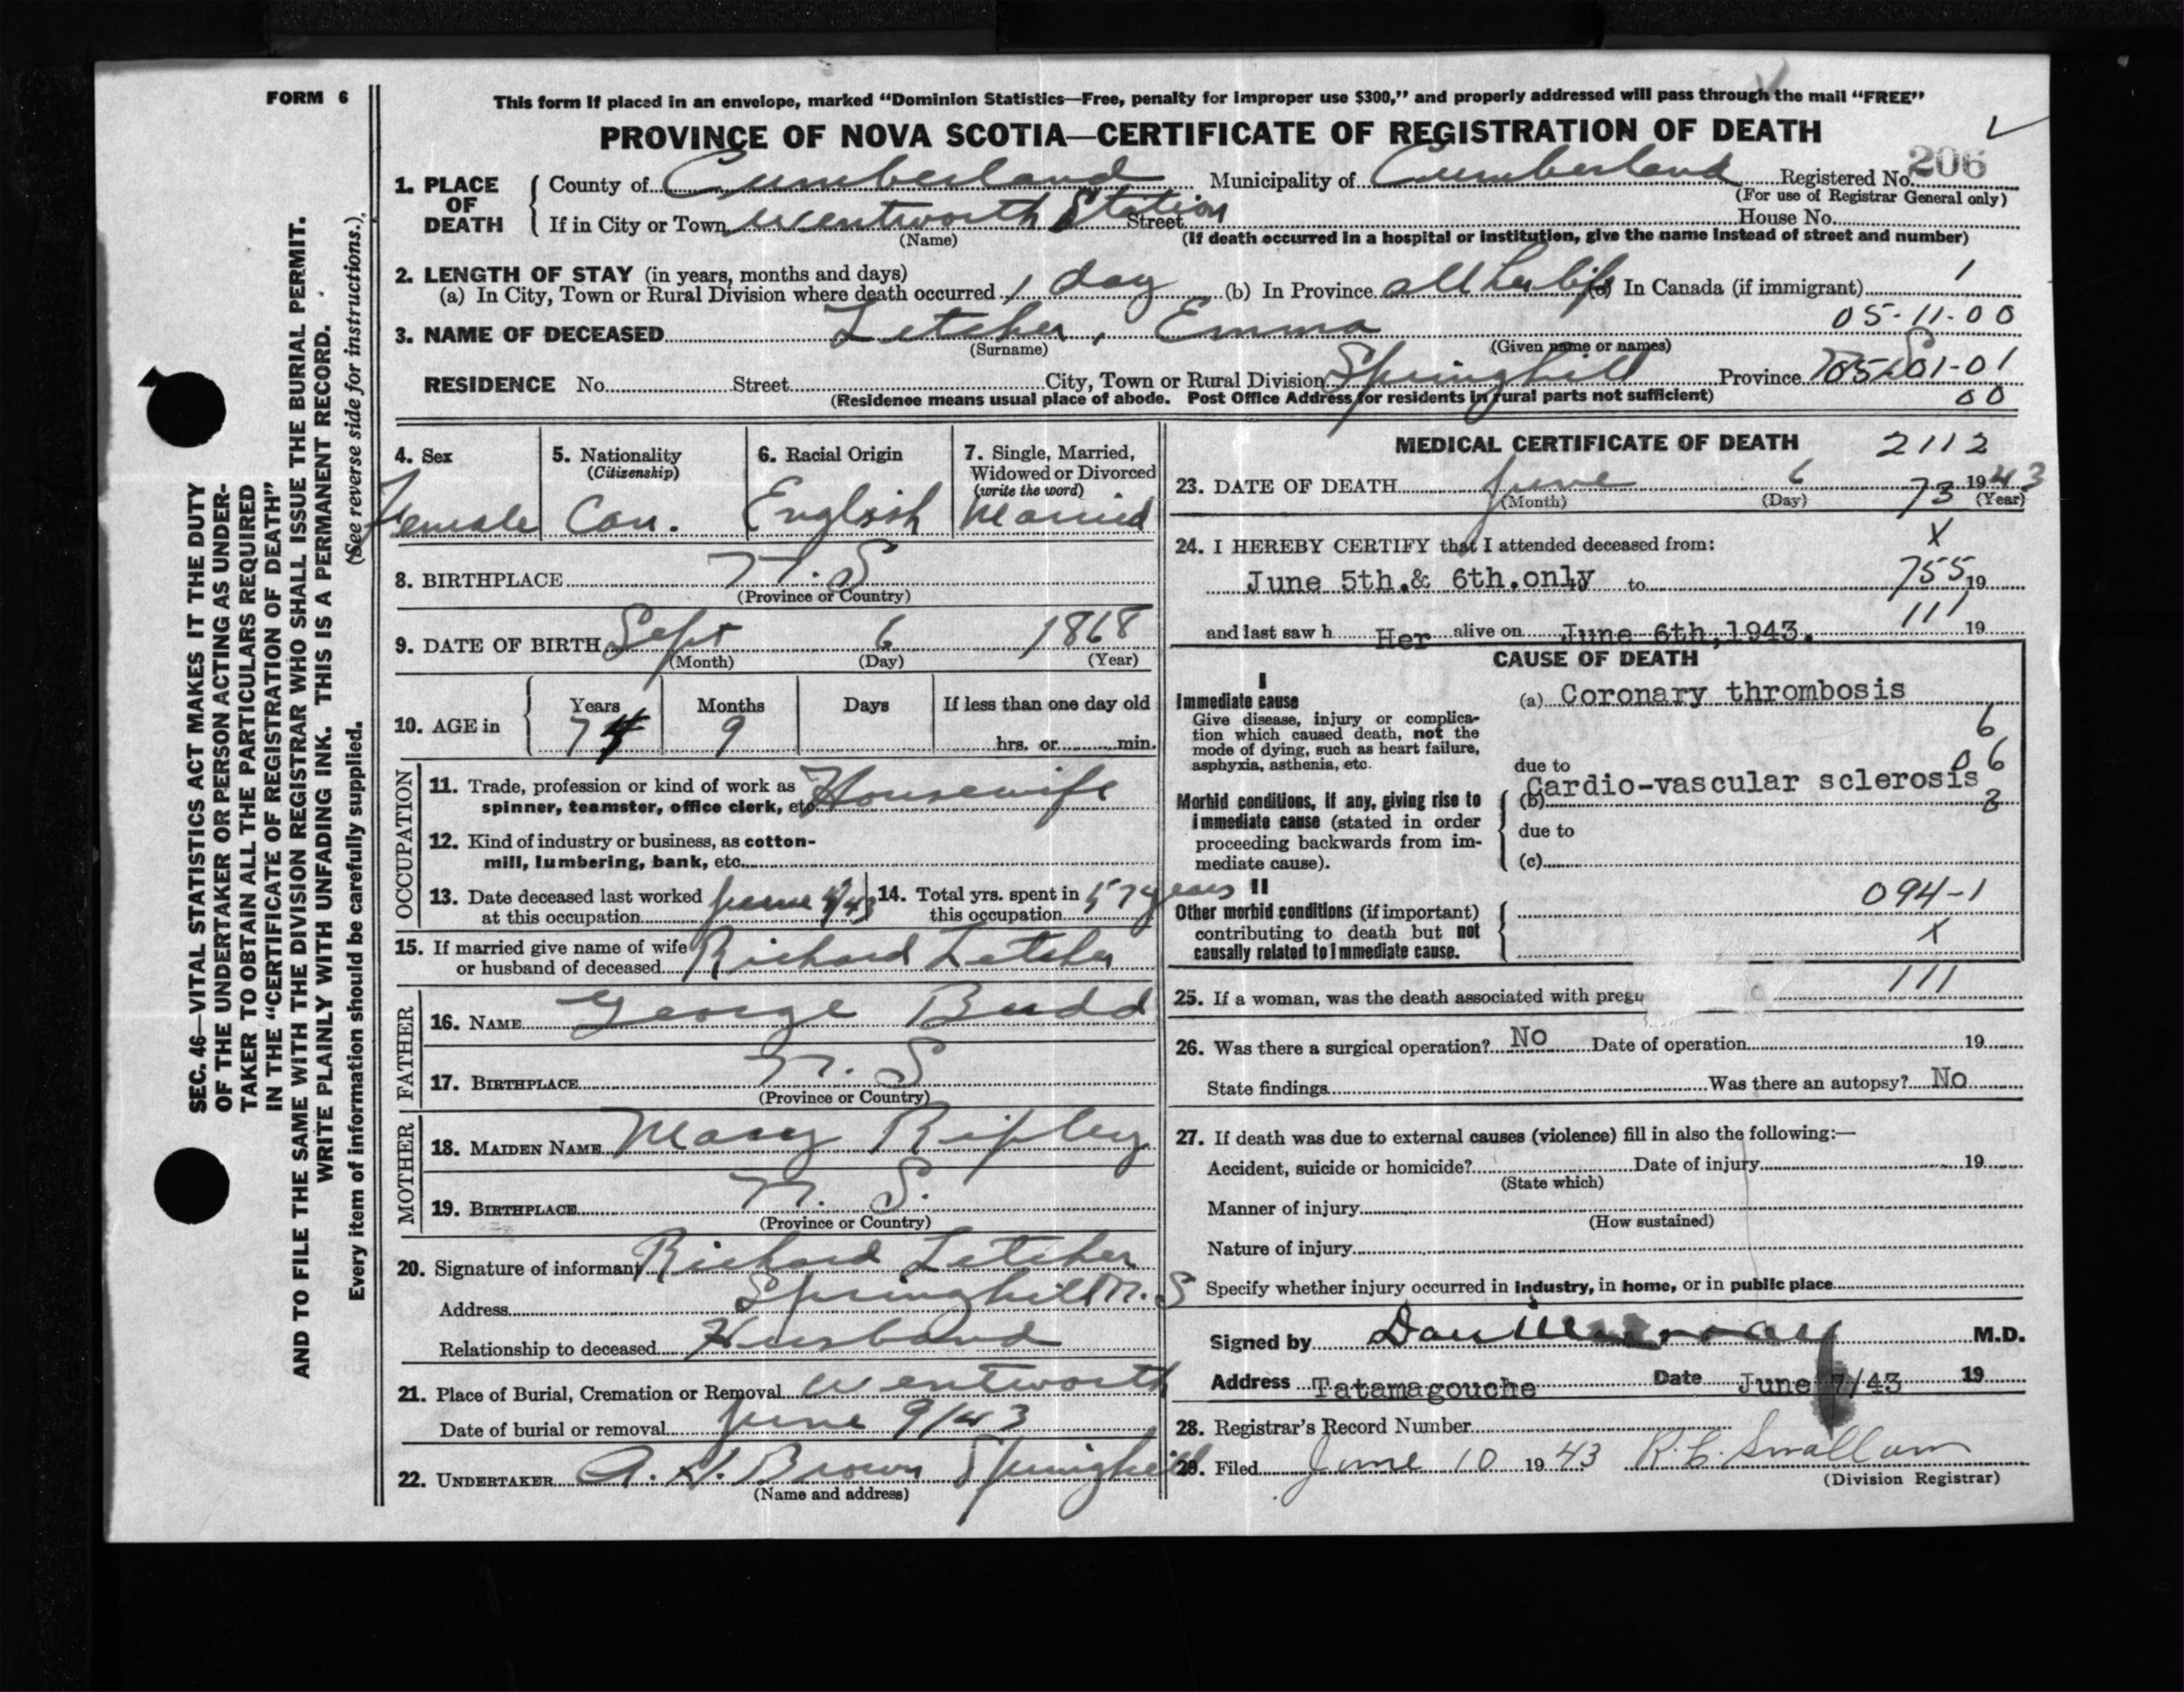 FORM 6
This form if placed in an envelope, marked “Dominion Statistics—Free, penalty for improper use $300,” and properly addressed will pass through the mail “FREE”
PROVINCE OF NOVA SCOTIA—CERTIFICATE OF REGISTRATION OF DEATH
206
1. PLACE OF DEATH { County of Cumberland Municipality of Cumberland Registered No.
(For use of Registrar General only)
If in City or Town Wentworth Station Street House No.
(Name) (If death occurred in a hospital or institution, give the name instead of street and number)
2. LENGTH OF STAY (in years, months and days)
(a) In City, Town or Rural Division where death occurred 1 day (b) In Province all her life (c) In Canada (if immigrant) 1
05-11-00
3. NAME OF DECEASED Letcher, Emma
(Surname) (Given name or names)
RESIDENCE No. Street City, Town or Rural Division Springhill Province 01-01
(Residence means usual place of abode. Post Office Address for residents in rural parts not sufficient) 00
4. Sex 5. Nationality 6. Racial Origin 7. Single, Married,
(Citizenship) Widowed or Divorced
(write the word)
Female Can. English Married
8. BIRTHPLACE N.S
(Province or Country)
9. DATE OF BIRTH Sept 6 1868
(Month) (Day) (Year)
10. AGE in { Years Months Days If less than one day old
74 9 hrs. or min.
OCCUPATION
11. Trade, profession or kind of work as
spinner, teamster, office clerk, etc. Housewife
12. Kind of industry or business, as cotton-
mill, lumbering, bank, etc.
13. Date deceased last worked
at this occupation June /43
14. Total yrs. spent in
this occupation 57 years
15. If married give name of wife
or husband of deceased Richard Letcher
FATHER
16. NAME George Budd
17. BIRTHPLACE N. S
(Province or Country)
MOTHER
18. MAIDEN NAME Mary Ripley
19. BIRTHPLACE N. S.
(Province or Country)
20. Signature of informant Richard Letcher
Address Springhill N. S
Relationship to deceased Husband
21. Place of Burial, Cremation or Removal Wentworth
Date of burial or removal June 9/43
22. UNDERTAKER Brown Springhill
(Name and address)
MEDICAL CERTIFICATE OF DEATH 2112
23. DATE OF DEATH June 6 1943
(Month) (Day) 73 (Year)
X
24. I HEREBY CERTIFY that I attended deceased from:
June 5th.& 6th.only to 755 19
111
and last saw h Her alive on June 6th,1943. 19
CAUSE OF DEATH
I
Immediate cause
Give disease, injury or complica-
tion which caused death, not the
mode of dying, such as heart failure,
asphyxia, asthenia, etc.
(a) Coronary thrombosis
6
due to 06
Morbid conditions, if any, giving rise to
immediate cause (stated in order
proceeding backwards from im-
mediate cause).
(b) Cardio-vascular sclerosis
due to
(c)
II
Other morbid conditions (if important)
contributing to death but not
causally related to immediate cause.
094-1
X
111
25. If a woman, was the death associated with
26. Was there a surgical operation? No Date of operation 19
State findings Was there an autopsy? No
27. If death was due to external causes (violence) fill in also the following:—
Accident, suicide or homicide? Date of injury 19
(State which)
Manner of injury
(How sustained)
Nature of injury
Specify whether injury occurred in industry, in home, or in public place
Signed by Dan M.D.
Address Tatamagouche Date June 7/43 19
28. Registrar's Record Number
29. Filed June 10 1943
(Division Registrar)
SEC. 46—VITAL STATISTICS ACT MAKES IT THE DUTY
OF THE UNDERTAKER OR PERSON ACTING AS UNDER-
TAKER TO OBTAIN ALL THE PARTICULARS REQUIRED
IN THE “CERTIFICATE OF REGISTRATION OF DEATH”
AND TO FILE THE SAME WITH THE DIVISION REGISTRAR WHO SHALL ISSUE THE BURIAL PERMIT.
WRITE PLAINLY WITH UNFADING INK. THIS IS A PERMANENT RECORD.
Every item of information should be carefully supplied. (See reverse side for instructions.)